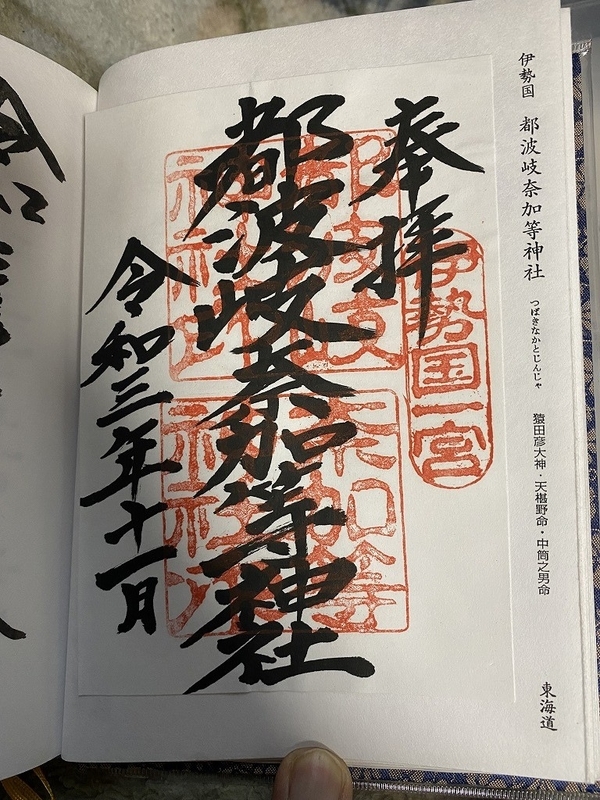 伊勢国 都波岐奈加等神社 つばきなかとじんじゃ 猿田彦大神・天椹野命・中筒之男命 東海道
奉拝
伊勢国一宮
都波岐奈加等神社
令和三年十一月